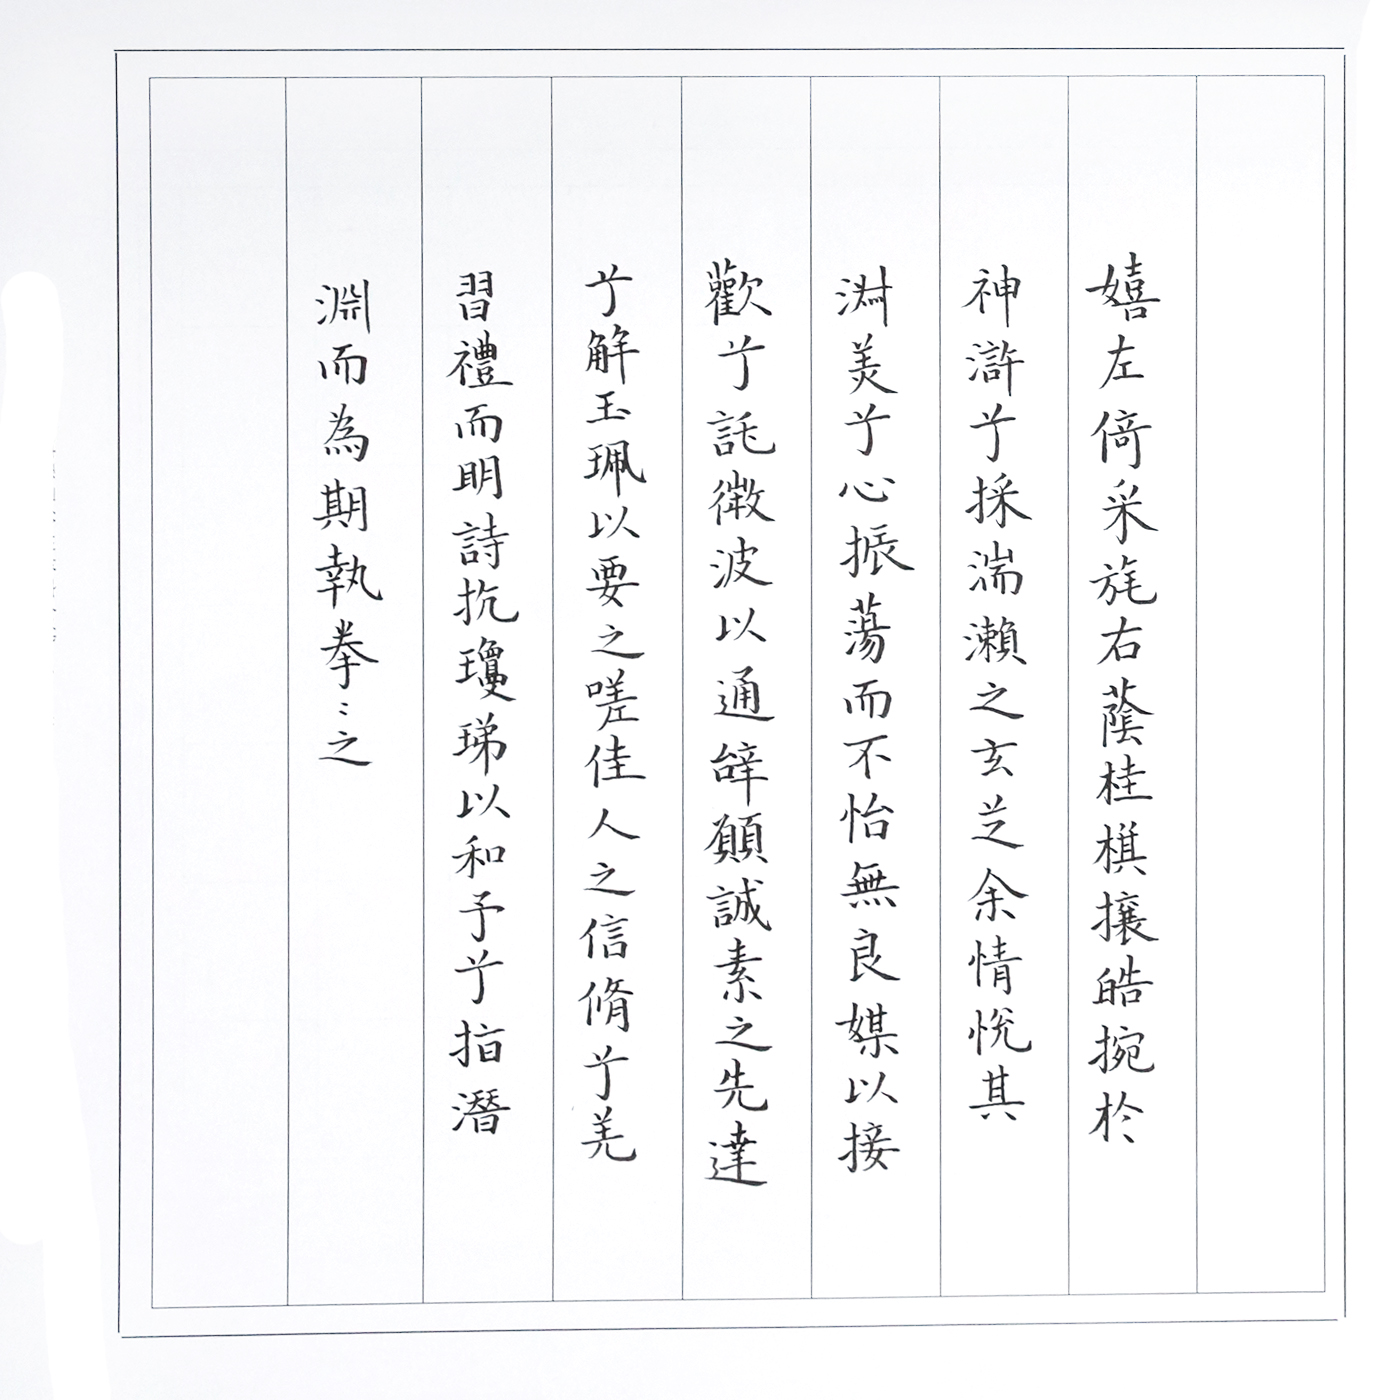 嬉左倚采旄右蔭桂棋攘皓捥於
神滸兮採湍瀨之玄芝余情悅其
淑美兮心振蕩而不怡無良媒以接
歡兮託微波以通辭願誠素之先達
兮解玉珮以要之嗟佳人之信脩兮羌
習禮而明詩抗瓊珶以和予兮指潛
淵而為期執拳〻之